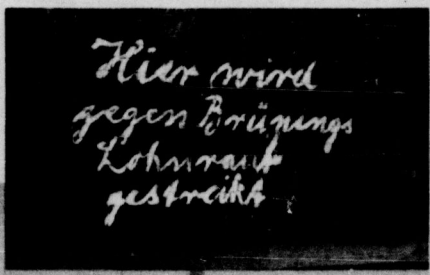 Hier wird
gegen Brünings
Lohnraub
gestreikt